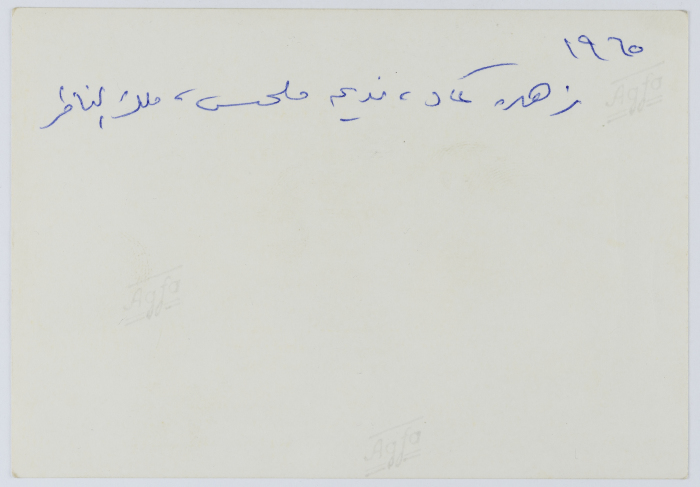 ١٩٦٥
زهره عماد، نديم ملحس، ملك الناظر
Agfa
Agfa
Agfa